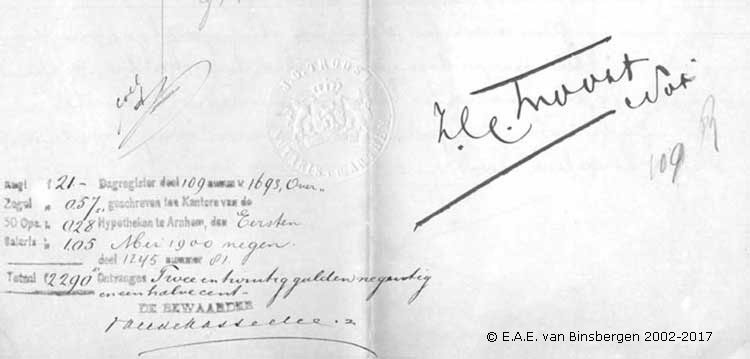 J.C. TROOST
J.C. Troost
Not.
109
Regt f 21 - Dagregister deel 109 nummer 1693, Over-
Zegel " 0.57, geschreven ten Kantore van de
50 Opc. " 0.28 Hypotheken te Arnhem, den Eersten
Salaris " 1.05 Mei 1900 negen.
deel 1245 nummer 81.
Totaal f 22.90 Ontvangen Twee en twintig gulden negentig
en een halve cent.
DE BEWAARDER
© E.A.E. van Binsbergen 2002-2017